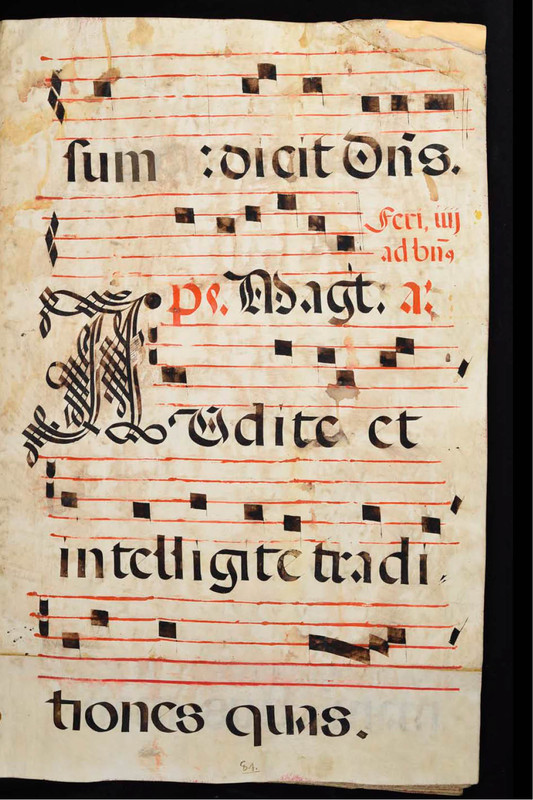 sum :dicit Dñs.
Feri, iiij
ad bñ9
ps. Magt. a:
AUdite et
intelligite tradi.
tiones quas.
81.